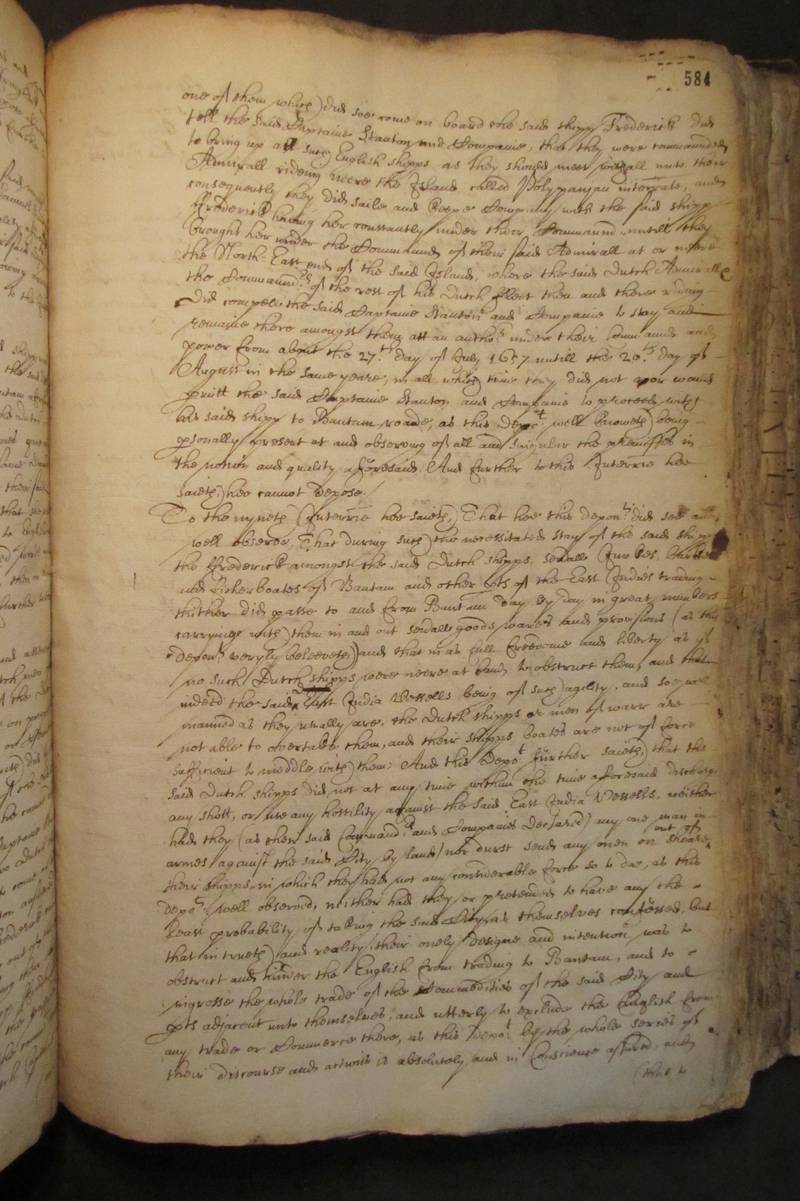 584
one of them which) did soe come on board the said shipp Frederick did
tell the said Captaine Stanton and Companie, that they were commaunded
to bring up all such English shipps as they should meet withall unto their
Admirall rideing neere the Island called Polypanjan interrate, and
consequently they did saile and keepe Company with the said shipp
Frederick having her constantly under their Commaund untill they
brought her under the Commaund of their said Admirall at or neere
the North-East end of the said Island, where the said Dutch Admirall
the Commaundr of the rest of his Dutch ffleet then and there riding
did compell the said Captaine Stanton and Companie to stay and
remaine there amongst them att an anchor under their Commaund and
power from about the 27th day of July 1657 untill the 20th day of
August in the same yeare, in all which time they did not nor would
pmitt the said Captaine Stanton and Companie to proceed with
his said shipp to Bantam roade, as this Depot well knoweth) being
psonally present at and observing of all and singuler the pmisses in
the notion and quality aforesaid, And further to this Interrie hee
saieth) hee cannot depose./
To the nyneth) Interrie hee saieth) That hee this Depont did see and
well observe That during such) the necessitated stay of the said shipp
the ffrederick amongst the said Dutch shipps, sevall Junckes,
and ffisherboates of Bantam and other pts of the East Indies trading
thither did passe to and from Bantam day by day in great numbers
carryinge with) them in and out sevall goods wares and provisions (as this
Depont veryly beleeveth) and that in as full freedome and liberty as if
no such Dutch shipps were neere at hand to obstruct them, and that
indeed the said East India Vessells being of such) agility, and soe well
manned as they usually are, the Dutch shipps or men of warr are
not able to overtake them, and their shipps boates are not of force
sufficient to meddle with) them: And this Depot further saieth) that the
said Dutch shipps did not at any time within the time aforesaid discharge
any shott, or use any hostility against the said East India Vessells, neither
had they (as their said Commandrs and Companies declared) any one man in
armes against the said City by land, nor durst send any men on shoare
out of
their shipps, in which they had not any considerable force so to doe, as this
Depot well observed, neither had they or pretended to have any the
least probability of taking the said City, as themselves confessed, but
that in trueth) and reality, their onely designe and intention was to
obstruct and hinder the English from trading to Bantam, and to
ingrosse the whole trade of the Commodities of the said City and
pts adjacent unto themselves, and utterly to exclude the English from
any trade or Commerce there, as this Depot by the whole series of
their discourse and actions is absolutely and in Conscience assured, and